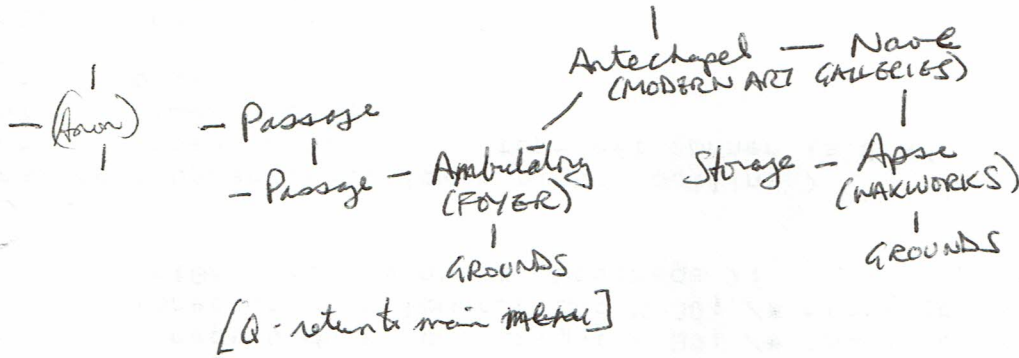 Antechapel — Nave
(MODERN ART GALLERIES)
— (Anon) — Passage
— Passage — Ambulatory Storage — Apse
(FOYER) (WAXWORKS)
GROUNDS GROUNDS
[Q - return to main menu]